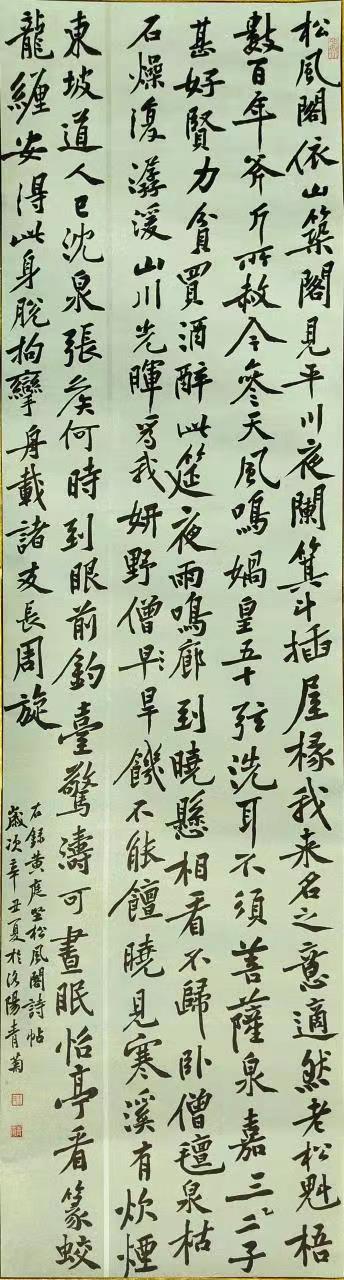 松風閣依山築閣見平川夜闌箕斗插屋椽我来名之意適然老松魁梧
數百年斧斤所赦今參天風鳴媧皇五十弦洗耳不須菩薩泉嘉三二子
甚好賢力貧買酒醉此筵夜雨鳴廊到曉懸相看不歸卧僧氈泉枯
石燥復潺湲山川光暉為我妍野僧早旱饑不能饘曉見寒溪有炊煙
東坡道人已沈泉張矦何時到眼前釣臺驚濤可晝眠怡亭看篆蛟
龍纏安得此身脱拘攣舟載諸友長周旋
右録黄庭堅松風閣詩帖
歲次辛丑夏於洛陽青菊